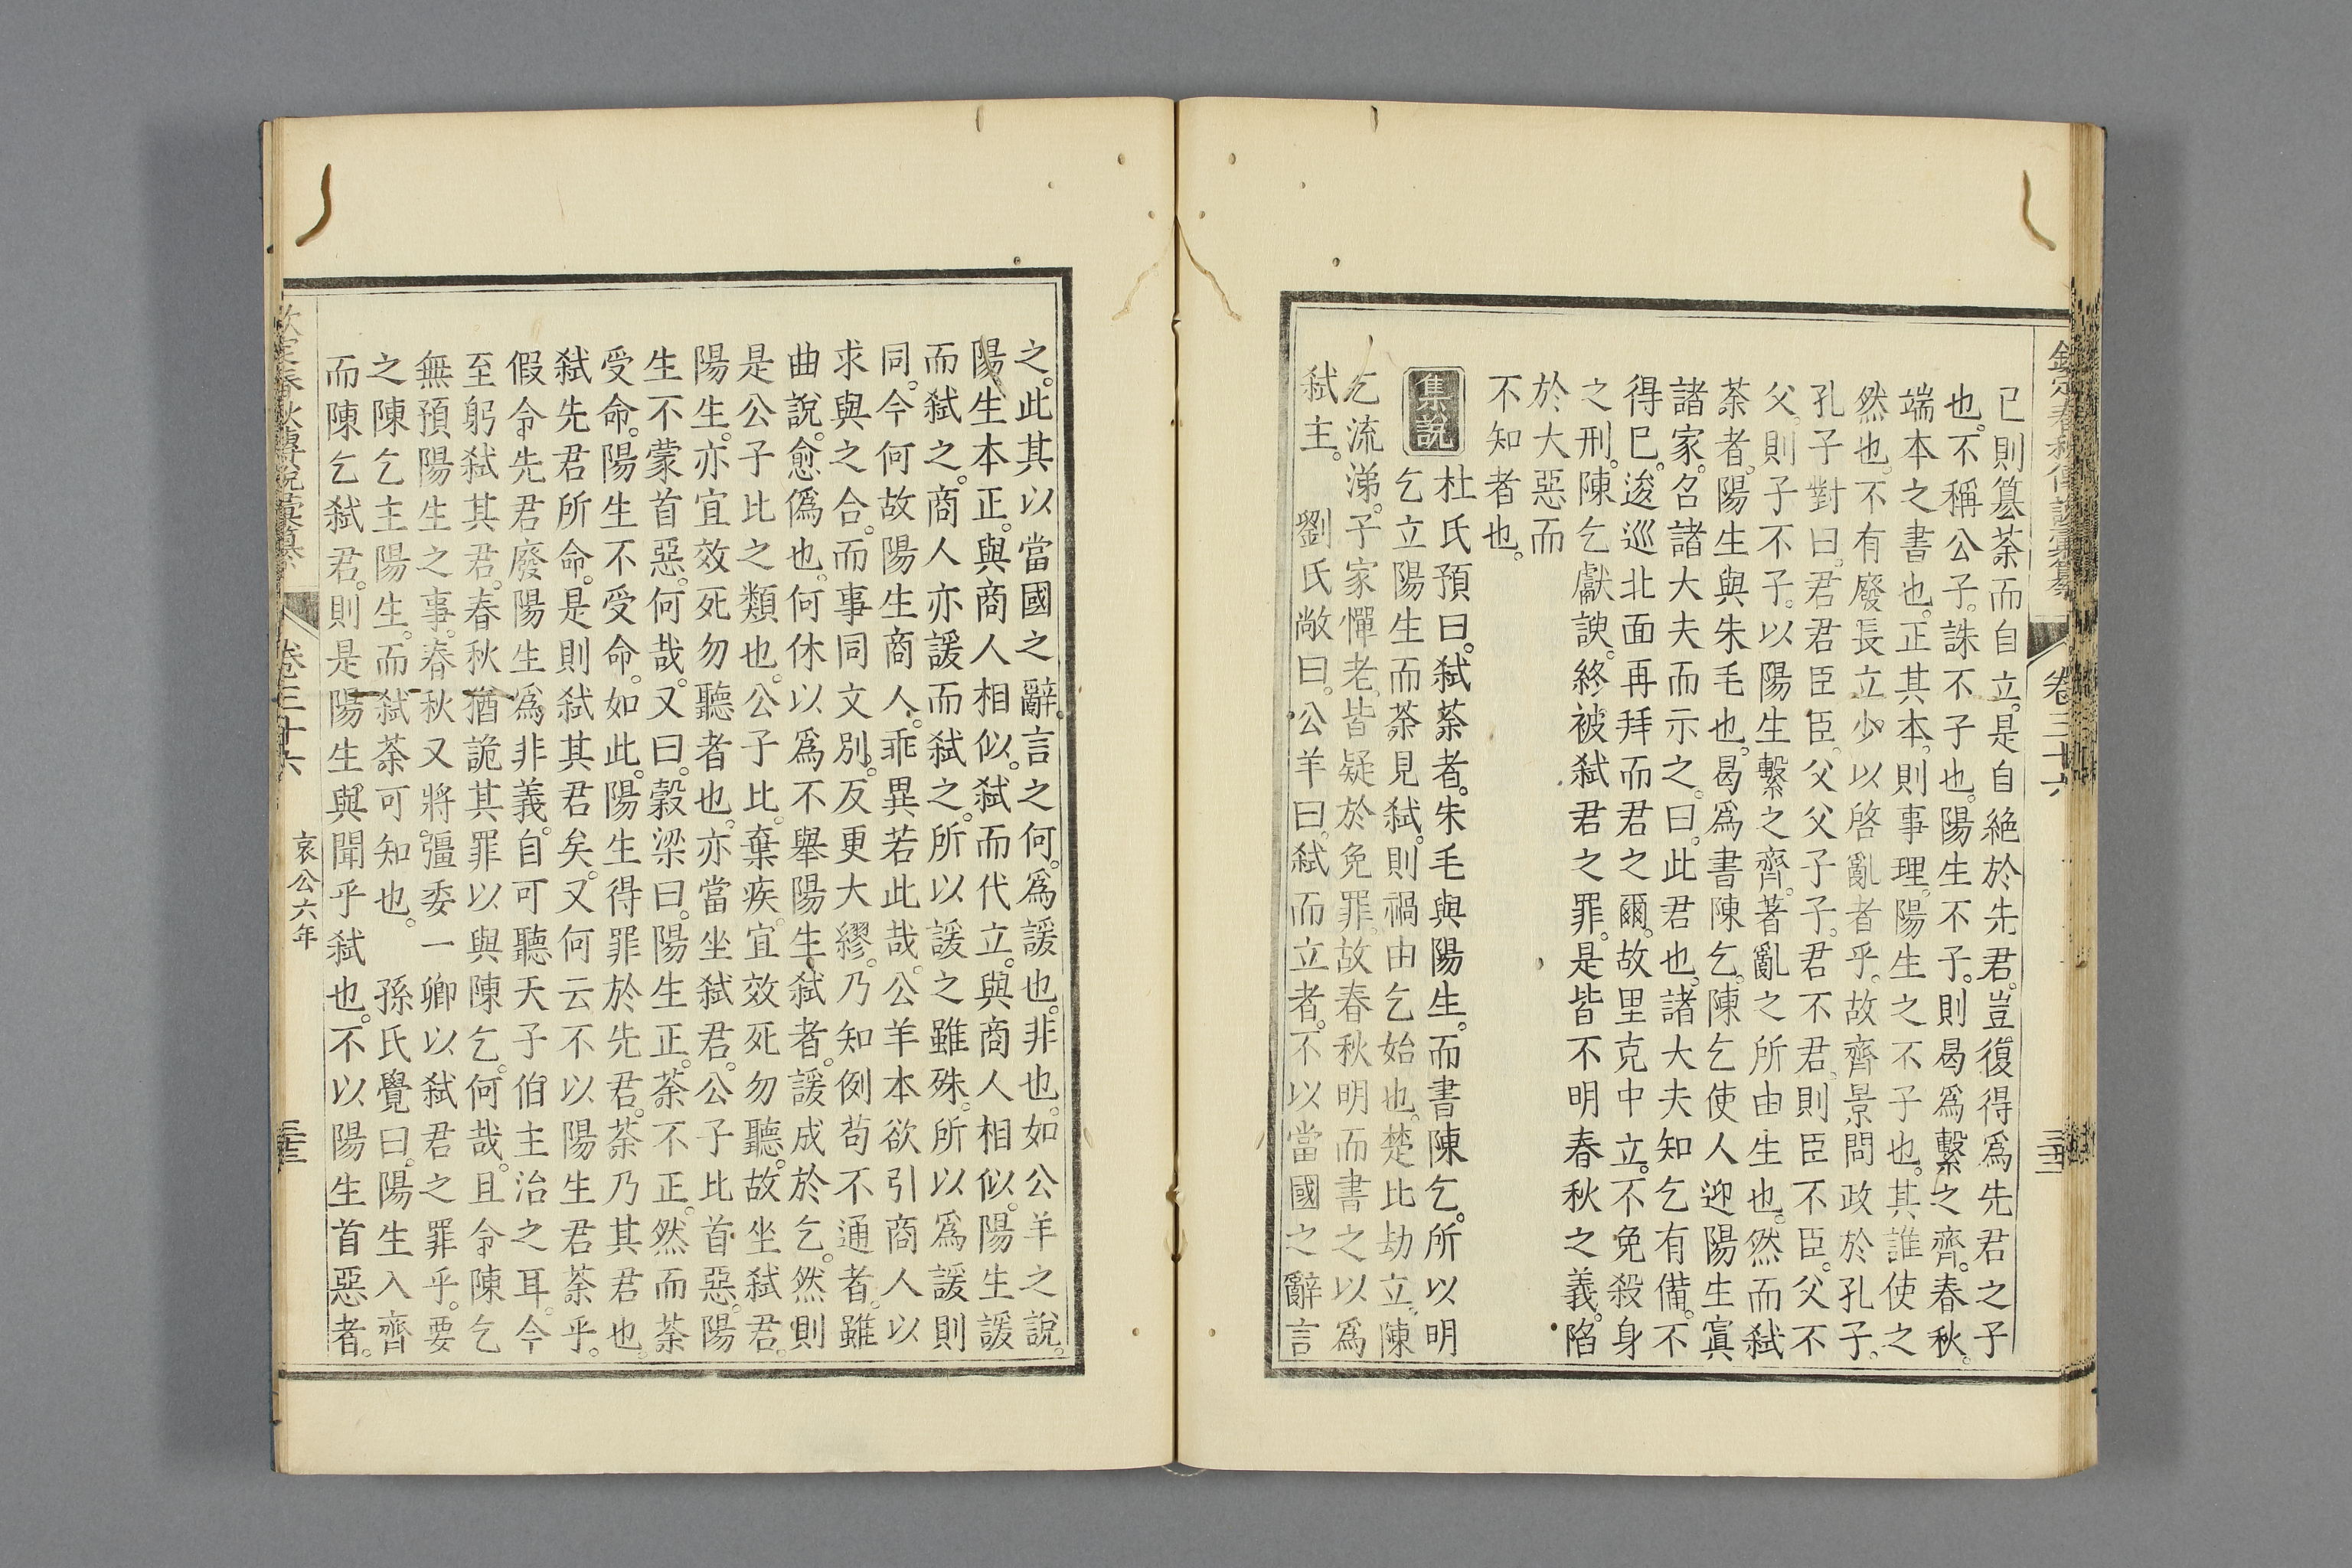 欽定春秋傳說彙纂 卷三十六
已則篡荼而自立。是自絕於先君。豈復得為先君之子
也。不稱公子。誅不子也。陽生不子。則曷為繫之齊。春秋
端本之書也。正其本。則事理。陽生之不子也。其誰使之
然也。不有廢長立少以啓亂者乎。故齊景問政於孔子。
孔子對曰。君君臣臣。父父子子。君不君。則臣不臣。父不
父。則子不子。以陽生繫之齊。著亂之所由生也。然而弒
荼者。陽生與朱毛也。曷為書陳乞。陳乞使人迎陽生寘
諸家。召諸大夫而示之。曰。此君也。諸大夫知乞有備。不
得巳。逡巡北面再拜而君之爾。故里克中立。不免殺身
之刑。陳乞獻諛。終被弒君之罪。是皆不明春秋之義。陷
於大惡而
不知者也。
集說
杜氏預曰。弒荼者。朱毛與陽生。而書陳乞。所以明
乞立陽生而荼見弒。則禍由乞始也。楚比劫立。陳
乞流涕。子家憚老。皆疑於免罪。故春秋明而書之以為
弒主。 劉氏敞曰。公羊曰。弒而立者。不以當國之辭言
之。此其以當國之辭言之何。為諼也。非也。如公羊之說。
陽生本正。與商人相似。弒而代立。與商人相似。陽生諼
而弒之。商人亦諼而弒之。所以諼之雖殊。所以為諼則
同。今何故陽生商人。乖異若此哉。公羊本欲引商人以
求與之合。而事同文別。反更大繆。乃知例苟不通者。雖
曲說。愈偽也。何休以為不舉陽生弒者。諼成於乞。然則
是公子比之類也。公子比。棄疾。宜效死勿聽。故坐弒君。
陽生。亦宜效死勿聽者也。亦當坐弒君。公子比首惡。陽
生不蒙首惡。何哉。又曰。穀梁曰。陽生正。荼不正。然而荼
受命。陽生不受命。如此。陽生得罪於先君。荼乃其君也。
弒先君所命。是則弒其君矣。又何云不以陽生君荼乎。
假令先君廢陽生為非義。自可聽天子伯主治之耳。今
至躬弒其君。春秋猶詭其罪以與陳乞。何哉。且令陳乞
無預陽生之事。春秋又將彊委一卿以弒君之罪乎。要
之陳乞主陽生。而弒荼可知也。 孫氏覺曰。陽生入齊
而陳乞弒君。則是陽生與聞乎弒也。不以陽生首惡者。
春秋傳說彙纂 卷三十六 哀公六年